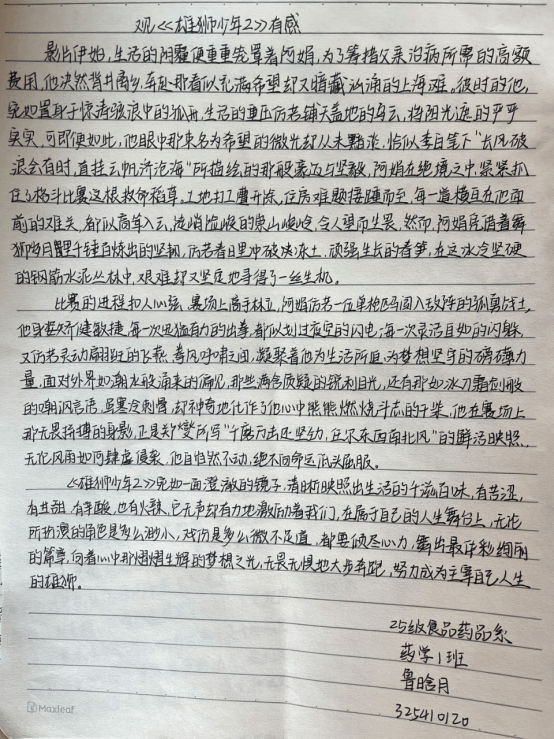 观《雄狮少年2》有感
影片伊始,生活的阴霾便重重笼罩着阿娟,为了筹措父亲治病所需的高额
费用,他决然背井离乡,奔赴那看似充满希望却又暗藏汹涌的上海滩。彼时的他,
宛如置身于惊涛骇浪中的孤舟,生活的重压仿若铺天盖地的乌云,将阳光遮的严严
实实,可即便如此,他眼中那束名为希望的微光却从未黯淡,恰似李白笔下"长风破
浪会有时,直挂云帆济沧海"所描绘的那般豪迈与坚毅,阿娟在绝境之中,紧紧抓
住了格斗比赛这根救命稻草。工地打工遭开除,住房难题接踵而至,每一道横亘在他面
前的难关,都似高耸入云,陡峭险峻的崇山峻岭,令人望而生畏,然而,阿娟凭借着舞
狮岁月里千锤百炼出的坚韧,仿若春日里冲破冻土,顽强生长的春笋,在这冰冷坚硬
的钢筋水泥丛林中,艰难却又坚定地寻得了一丝生机。
比赛的进程扣人心弦,赛场上高手林立,阿娟仿若一位单枪匹马闯入敌阵的孤勇战士,
他身姿矫健敏捷,每一次迅猛有力的出拳,都似划过夜空的闪电;每一次灵活自如的闪躲,
又仿若灵动翩跹的飞燕,拳风呼啸之间,凝聚着他为生活所迫,为梦想坚守的磅礴力
量,面对外界如潮水般涌来的偏见,那些满含质疑的锐利目光,还有那如冰刀霜剑般
的嘲讽言语,虽寒冷刺骨,却神奇地化作了他心中熊熊燃烧斗志的干柴,他在赛场上
那无畏拼搏的身影,正是郑燮所写"千磨万击还坚劲,任尔东西南北风"的鲜活映照,
无论风雨如何肆虐侵袭,他自岿然不动,绝不向命运低头屈服。
《雄狮少年2》宛如一面澄澈的镜子,清晰映照出生活的千滋百味,有苦涩,
有甘甜,有辛酸,也有火辣,它无声却有力地激励着我们,在属于自己的人生舞台上,无论
所扮演的角色是多么渺小,戏份是多么微不足道,都要倾尽心力,舞出最佳彩绚丽
的篇章,向着心中那熠熠生辉的梦想之光,无畏无惧地大步奔跑,努力成为主宰自己人生
的雄狮。
25级食品药品系
药学1班
鲁晗月
325410120
Maxleaf